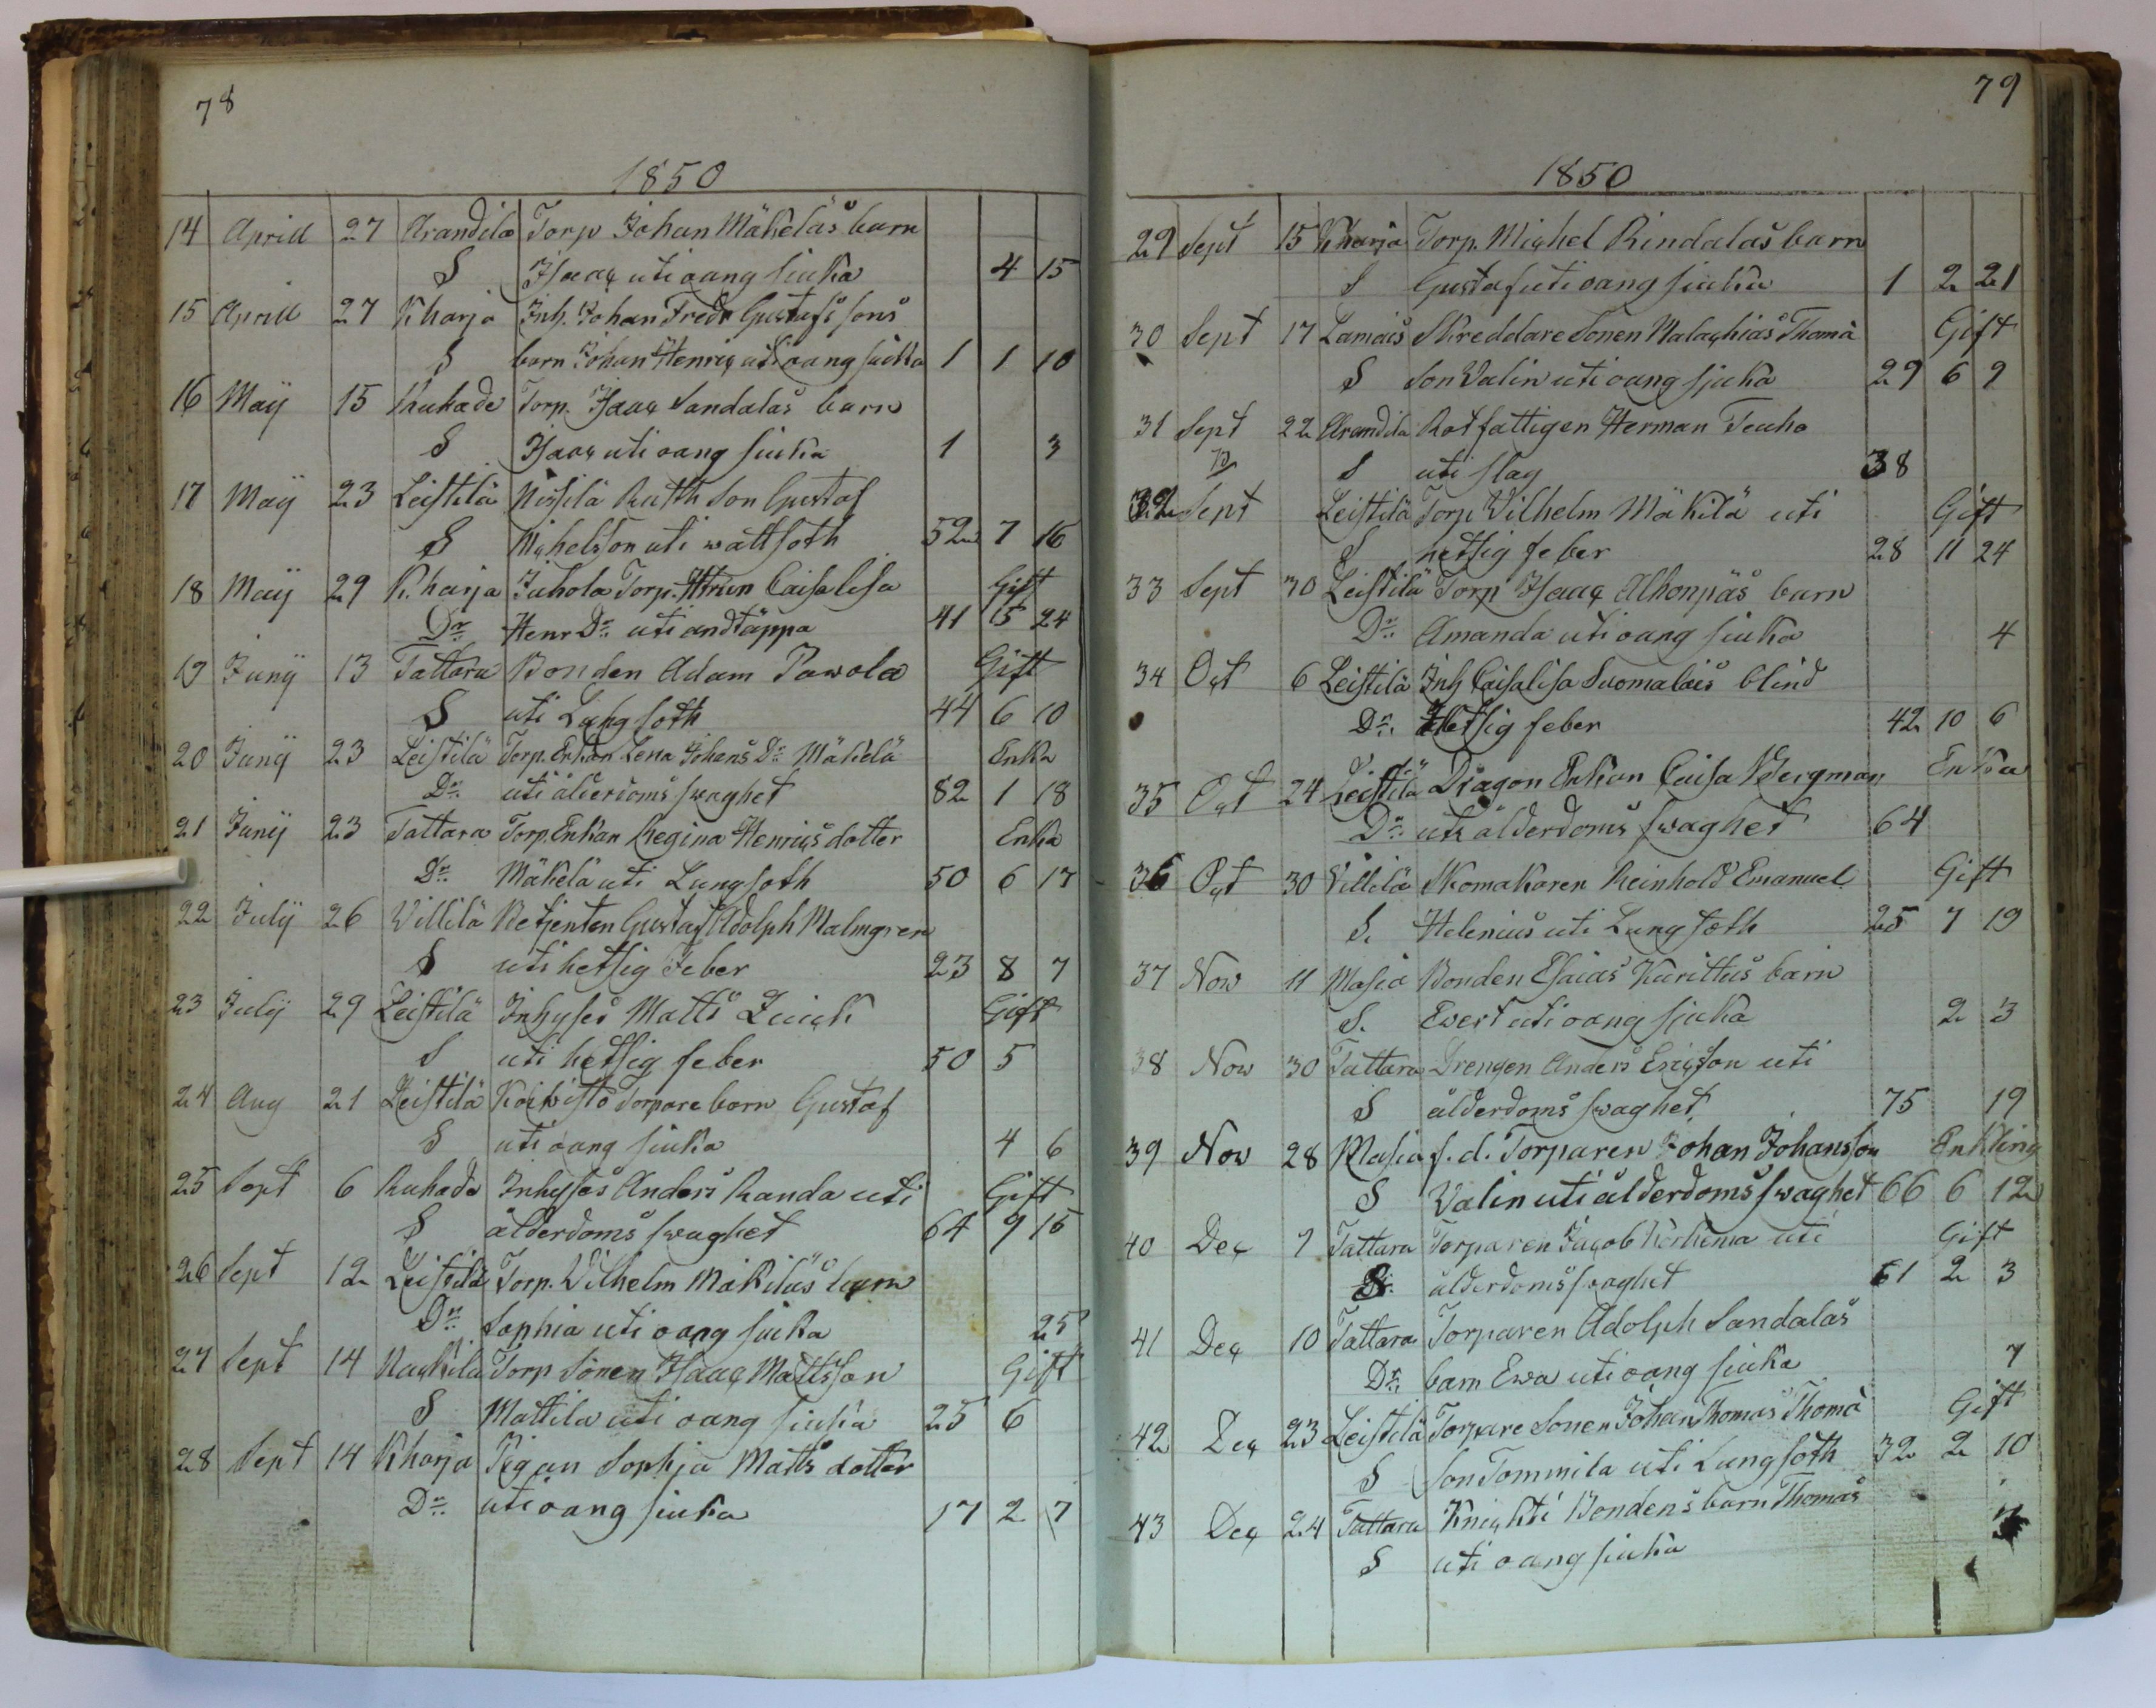 78
1850
14 Aprill 27 Arandila Torp Johan Mäkeläs barn
S Isaac uti oang siuka 4 15
15 Aprill 27 Kharja Inh. Johan Fredr Gustafs sons
S barn Johan Henric uti oang siuka 1 1 10
16 Maij 15 Ruhade Torp. Isaac Sandalas barn
S Isaac uti oang siuka 1 3
17 Maij 23 Leistilä Nissilä Ruth Son Gustaf
S Michelsson uti wattsoth 52 7 16
18 Maij 29 K.harja Juhola Torp. Caisa Lisa Gift
Dr Henr Dr uti andtäppa 41 5 24
19 Junij 13 Tattara Bonden Adam Pawola Gift
S uti Lungsoth 44 6 10
20 Junij 23 Leistilä Torp. Enkan Lena Johans Dr Mäkelä Enka
Dr uti ålderdoms swaghet 82 1 18
21 Junij 23 Tattara Torp Enkan Regina Henrics dotter Enka
Dr Mäkelä uti Lungsoth 50 6 17
22 Julij 26 Villilä Betjenten Gustaf Adolph Malmgren
S uti hetsig Feber 23 8 7
23 Julij 29 Leistilä Inhyses Matts Gift
S uti hetsig feber 50 5
24 Aug 21 Leistilä Koiwisto Torpare barn Gustaf
S uti oang siuka 4 6
25 Sept 6 Ruhade Inhyses Anders Randa uti Gift
S ålderdoms swaghet 64 9 15
26 Sept 12 Leistilä Torp. Vilhelm Mäkiläs barn
Dr Sophia uti oang siuka 25
27 Sept 14 Torp Sonen Isaac Mattsson Gift
S Mattila uti oang siuka 25 6
28 Sept 14 Kharja Pigan Sophia Matts dotter
Dr uti oang siuka 17 2 7
79
1850
29 Sept 15 Kharja Torp. Michel Rindalas barn
S Gustaf uti oang siuka 1 2 21
30 Sept 17 Lamais Skreddare Sonen Malachias Thomä Gift
S Son Valin uti oang sjuka 29 6 9
31 Sept 22 Arandila Rotfattigen Herman Teuho
S uti slag 38
32 Sept Leistilä Torp Vilhelm Mäkilä uti Gift
S hetsig feber 28 11 24
33 Sept 30 Leistilä Torp Isaac Alhonpäs barn
Dr Amanda uti oang siuka 4
34 Oct 6 Leistilä Inh Caisalisa Suomalais blind
Dr. Hetsig feber 42 10 6
35 Oct 24 Leistilä Dragon Enkan Caisa Bergman Enka
Dr uti ålderdoms swaghet 64
36 Oct 30 Villilä Skomakaren Reinhold Emanuel Gift
S. Helenius uti Lungsoth 25 7 19
37 Now 11 Masia Bonden Esaias Kurittus barn
S. Ewert uti oang sjuka 2 3
38 Now 30 Tattara Drengen Anders Ericsson uti
S ålderdoms swaghet 75 19
39 Now 28 Masia f.d. Torparen Johan Johansson Enkling
S Valin uti ålderdoms swaghet 66 6 12
40 Dec 7 Tattara Torparen Jacob uti Gift
S. ålderdoms swaghet 61 2 3
41 Dec 10 Tattara Torparen Adolph Sandalas
Dr. barn Ewa uti oang siuka 7
42 Dec 23 Leistilä Torpare Sonen Johan Thomas Thomä Gift
S Son Tommila uti Lungsoth 32 2 10
43 Dec 24 Tattara Knichti Bondens barn Thomas
S uti oang siuka